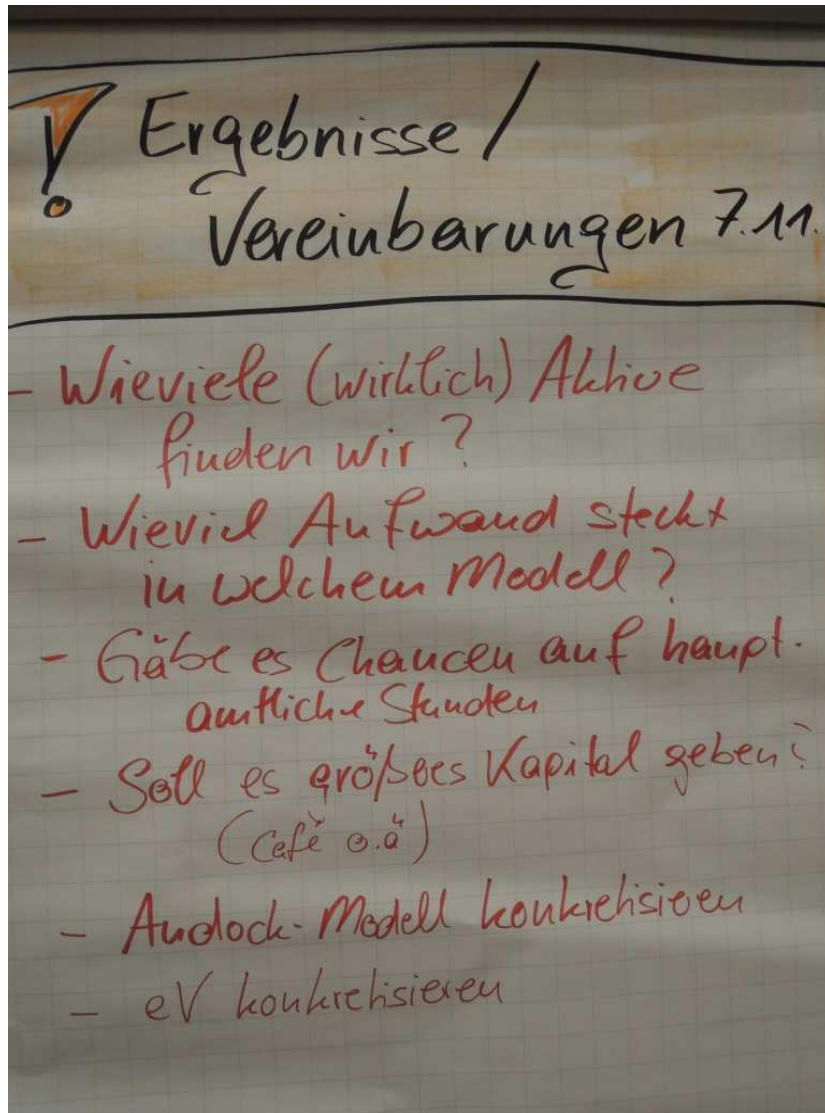 ! Ergebnisse /
Vereinbarungen 7.11.
- Wieviele (wirklich) Aktive
finden wir?
- Wieviel Aufwand steckt
in welchem Modell?
- Gäbe es Chancen auf haupt-
amtliche Stunden
- Soll es größeres Kapital geben?
(Café o.ä)
- Andock-Modell konkretisieren
- eV konkretisieren